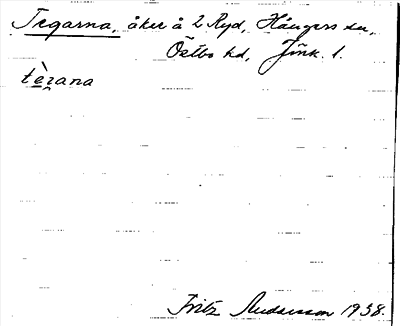 Tegarna, åker å 2 Ryd, Hångers sn,
Östbo hd, Jönk. l.
tèꝛ̣ana
Fritz Andersson 1938.